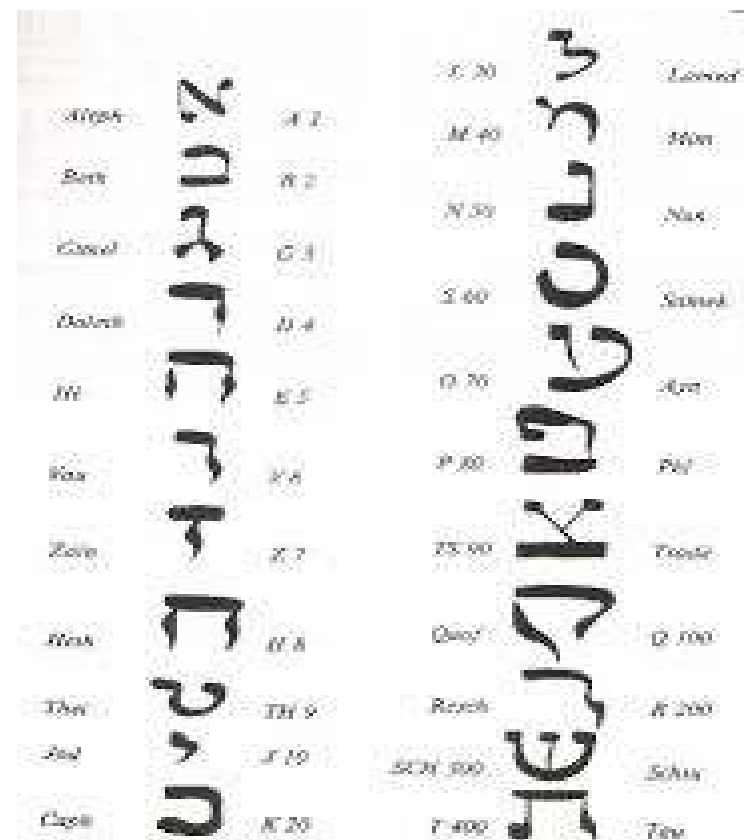 Aleph א A 1
Beth ב B 2
Gimel ג G 3
Daleth ד D 4
Hé ה E 5
Vau ו V 6
Zain ז Z 7
Heth ח H 8
Thet ט TH 9
Jod י J 10
Caph כ K 20
L 30 ל Lamed
M 40 מ Men
N 50 נ Nun
S 60 ס Samek
O 70 ע Ayn
P 80 פ Phé
TS 90 צ Tsade
Quof ק Q 100
Resch ר R 200
SCH 300 ש Schin
T 400 ת Tau